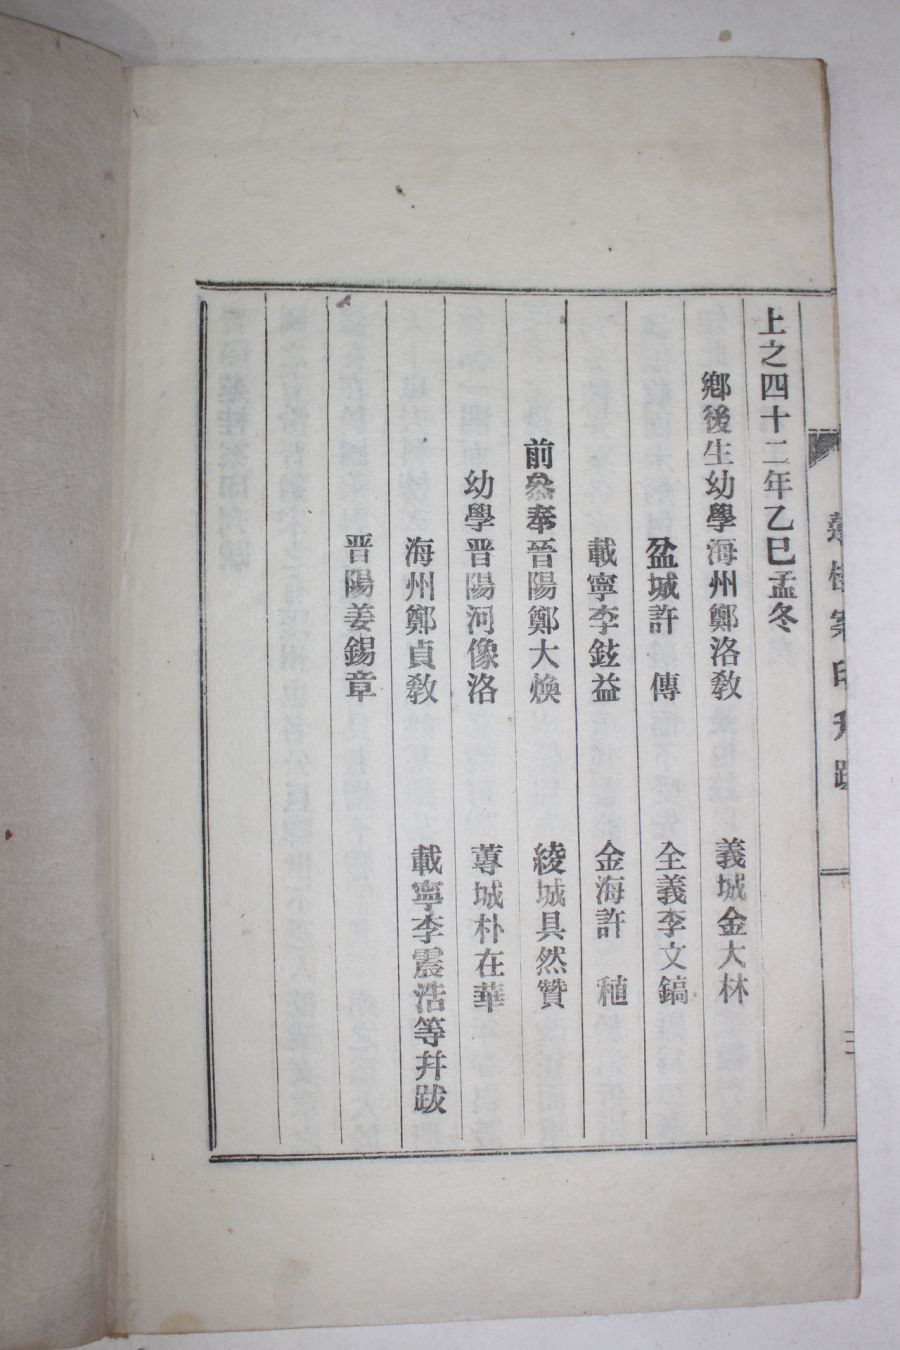 上之四十二年乙巳孟冬
鄕後生幼學海州鄭洛敎 義城金大林
盆城許 傳 全義李文鎬
載寧李鉉益 金海許 稙
前叅奉晉陽鄭大煥 綾城具然贊
幼學晋陽河像洛 蓴城朴在華
海州鄭貞敎 載寧李震浩等幷跋
晋陽姜錫章
蓮桂案印刋跋
三